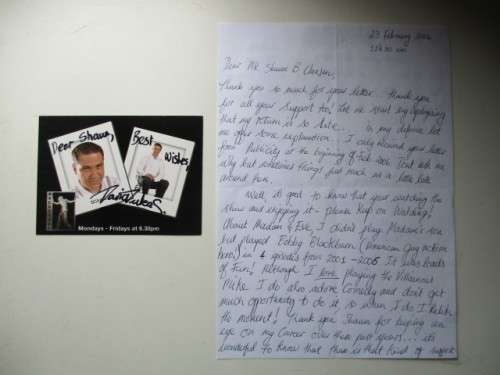 Dear Shaun,
Best
Wishes,
Mondays - Fridays at 6.30pm
23 February
Dear Mr. Shaun B
Thank you so much for your letter. Thank you
for all your support too! Let me start by apologising
that my return is so late. In my defence let
me offer some explanation. I only received your letter
from Publicity at the beginning of Feb. Don't ask me
why but sometimes things just reach us a little late
around here.
Well its good to know that your watching the
show and enjoying it - please keep on watching!
About Madam & Eve, I didn't play Madam's son
but played Bobby Blackburn (American Guy action
hero!) in 4 episodes from 2001 - 2005 It was loads
of Fun! Although I love playing the Villainous
I do also adore Comedy and don't get
much opportunity to do it so when I do I Relish
the moment! Thank you Shaun for keeping an
eye on my Career over these past years... its
wonderful to know that there is that kind of support